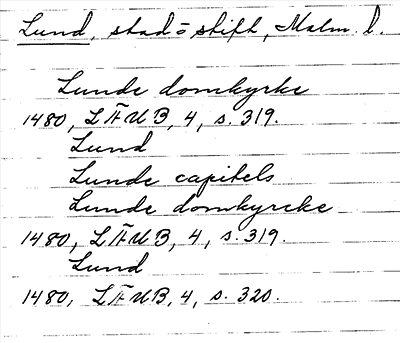 Lund, stad o stift, Malm. l.
Lunde domkyrke
1480, LÄUB, 4, s. 319.
Lund
Lunde capitels
Lunde domkyrcke
1480, LÄUB, 4, s. 319.
Lund
1480, LÄUB, 4, s. 320.